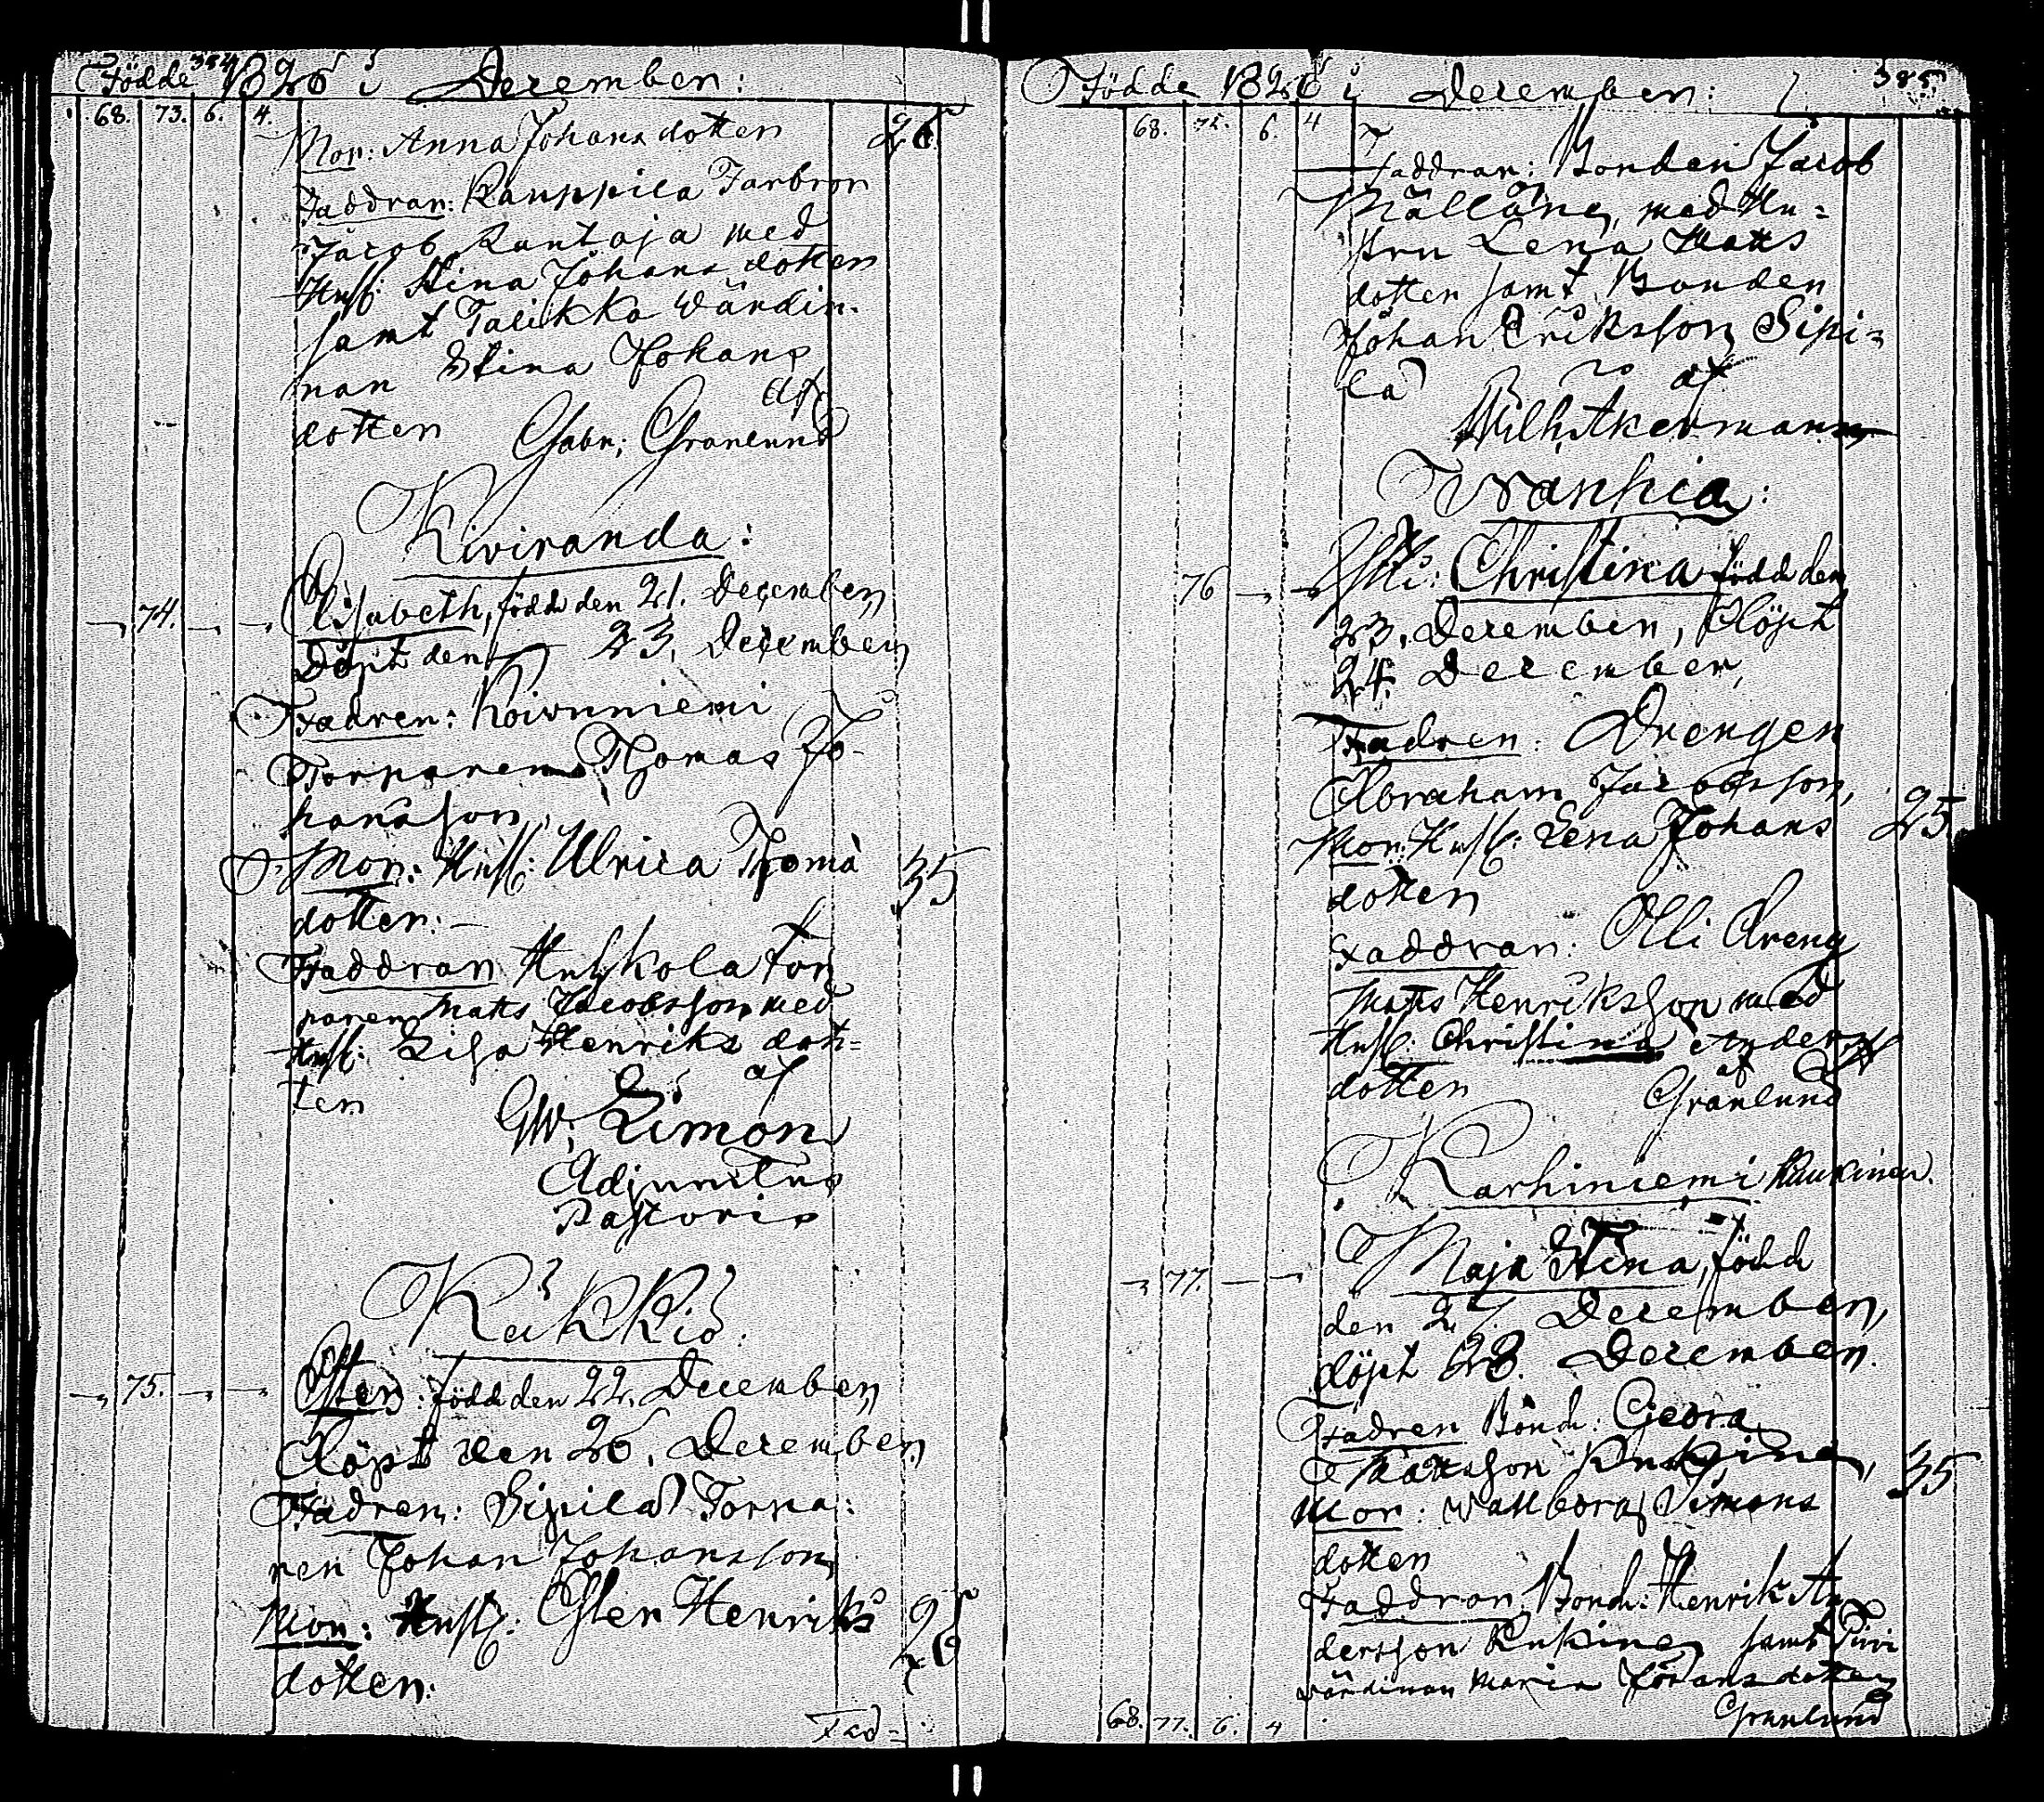 Födde 1826 i December:
384
68. 73. 6. 4.
Mor: Anna Johans dotter
26
Faddrar: Kauppila Farbror
Jacob Rantaja med
Hust: Stina Johans dotter
samt Talikka Wärdin-
nan Stina Johans
dotter af
Gabr: Granlund
Kiviranda:
74. Elisabeth, född den 21. December,
Döpt den 23. December,
Fadren: Koivuniemi
Torparen Thomas Jo-
hansson,
Mor: Hust: Ulrica Thomæ
35
dotter:
Faddrar Huskola Tor
paren Matts Jacobsson med
Hust: Lisa Henriks dot=
ter
af
GW. Limon
Adjunctus
Pastoris
Käkkiö:
75. Ester: född den 22. December,
Döpt den 26. December,
Fadren: Sipilä Torpa:
ren Johan Johansson,
Mor: Hust: Ester Henriks
26
dotter:
Fad=
Födde 1826 i December:
385
68. 75. 6. 4
Faddrar: Bonden Jacob
med Hu=
stru Lena Matts
dotter samt Bonden
Johan Eriksson Sipi=
lä
af
Wilh Akermann
76 Christina född den
23. December, Döpt
24. December,
Fadren: Drengen
Abraham Jacobsson,
Mor: Hust: Lena Johans
25
dotter
Faddrar: Olli Dreng
Matts Henriksson med
Hust: Christina Anders
dotter
af
Granlund
Karhiniemi Kaukinen.
77. Maja Stina, född
den 27 December,
döpt 28. December.
Fadren Bond: Georg
Mattsson
35
Mor: Wallborg Simons
dotter
Faddrar: Bond: Henrik An
dersson samt Piiri
wärdinnan Maria Johans dotter
Granlund
68. 77. 6. 4